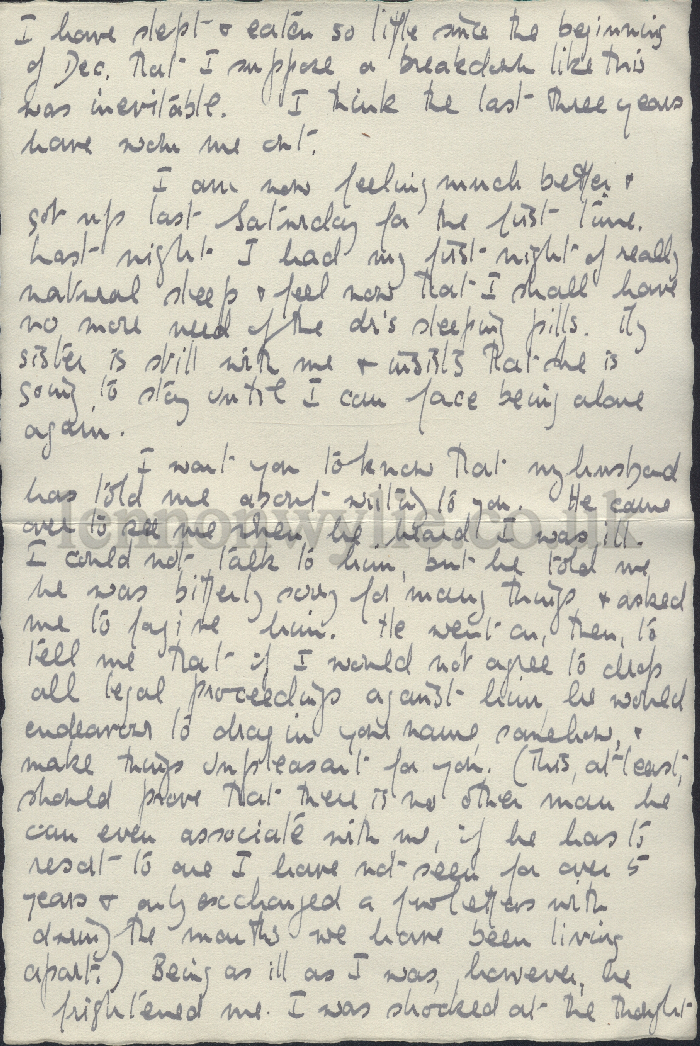 I have slept & eaten so little since the beginning
of Dec. that I suppose a breakdown like this
was inevitable. I think the last three years
have worn me out.
I am now feeling much better &
got up last Saturday for the first time.
Last night I had my first night of really
natural sleep & feel now that I shall have
no more need of the dr's sleeping pills. My
sister is still with me & insists that she is
going to stay until I can face being alone
again.
I want you to know that my husband
has told me about writing to you. He came
over to see me when he heard I was ill.
lennonwylie.co.uk
I could not talk to him, but he told me
he was bitterly sorry for many things & asked
me to forgive him. He went on, then, to
tell me that if I would not agree to drop
all legal proceedings against him, he would
endeavour to drag in your name, somehow, &
make things unpleasant for you. (This, at least,
should prove that there is no other man he
can even associate with me, if he has to
resort to one I have not seen for over 5
years & only exchanged a few letters with
during the months we have been living
apart.) Being as ill as I was, however, he
frightened me. I was shocked at the thought